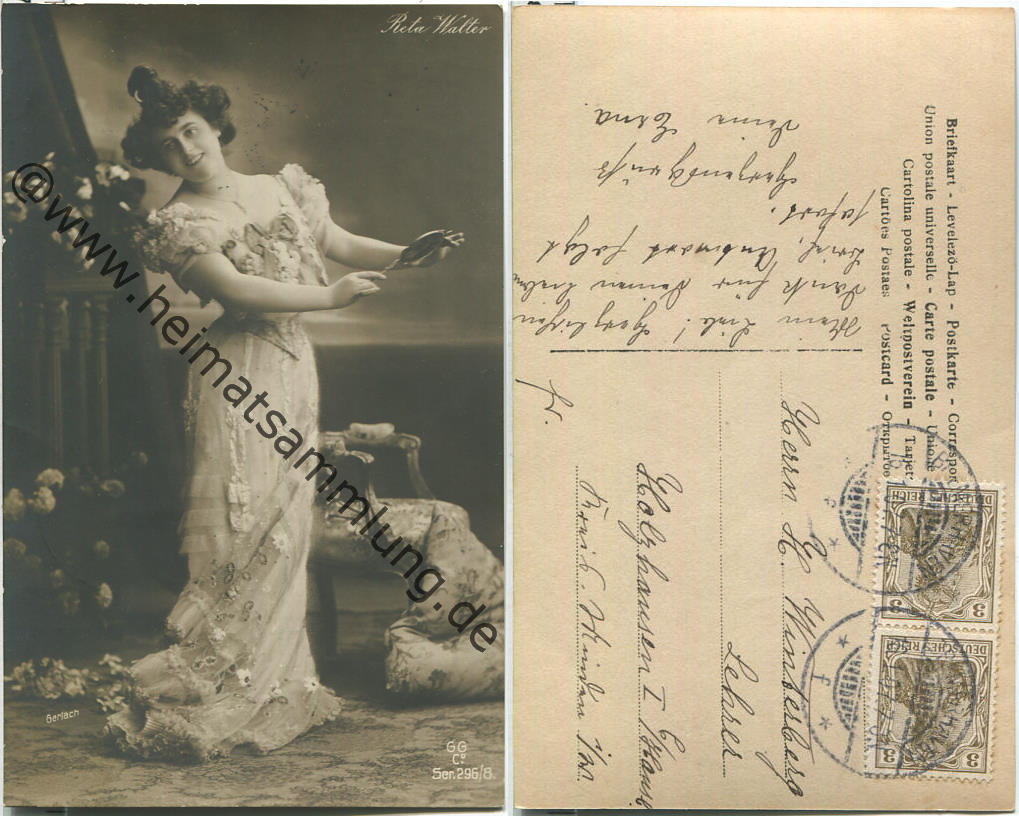 Reta Walter
@www.heimatsammlung.de
Gerlach
GG
Co
Ser. 296/8.
Briefkaart - Levelező-Lap - Postkarte - Correspon
Union postale universelle - Carte postale - Unione
Cartolina postale - Weltpostverein - Tarjet
Cartões Postaes Postcard - Открытое
Mein Liebl! Herzlichen
Dank für Deinen lieben
Brief, Antwort folgt
sofort.
Herzendgrüße
Deine Erna
Herrn H. Winterberg
Lehrer
Holzhausen I
Kreis. Minden i/W.
DEUTSCHES REICH
3
3
DEUTSCHES REICH
3
3